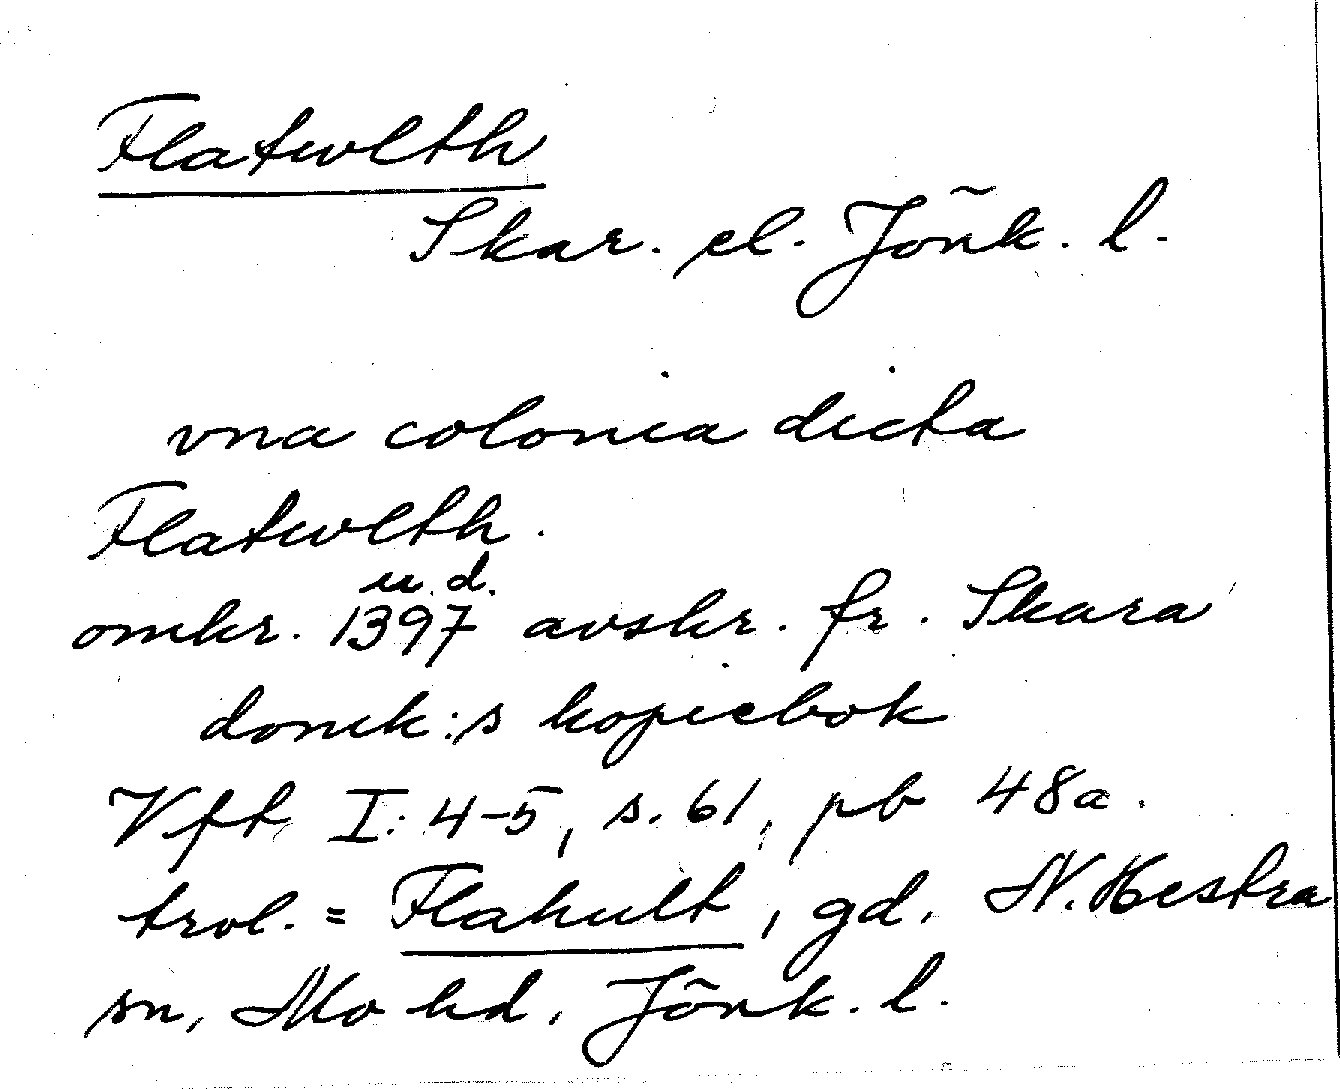 Flatwlth
Skar. el. Jönk. l.
vna colonia dicta
Flatwlth.
u. d.
omkr. 1397 avskr. fr. Skara
domk:s kopiebok
Vft I: 4-5, s. 61, pb 48a.
trol. = Flahult, gd, N. Hestra
sn, Mo hd, Jönk. l.